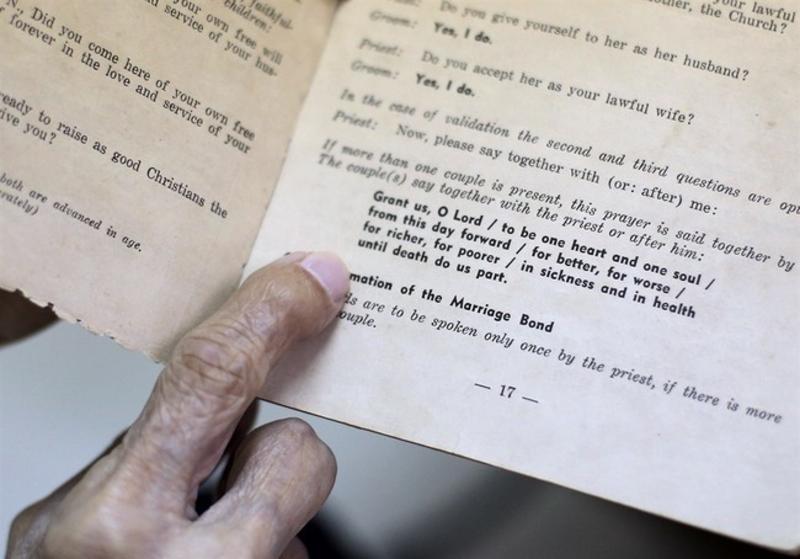 faithful.
children:
your own free will
and service of your hus-
N., Did you come here of your own free
forever in the love and service of your
ready to raise as good Christians the
give you?
both are advanced in age.
rately)
your lawful
other, the Church?
Do you give yourself to her as her husband?
Groom: Yes, I do.
Priest: Do you accept her as your lawful wife?
Groom: Yes, I do.
In the case of validation the second and third questions are
Priest: Now, please say together with (or: after) me:
If more than one couple is present, this prayer is said together by
The couple(s) say together with the priest or after him:
Grant us, O Lord / to be one heart and one soul /
from this day forward / for better, for worse /
for richer, for poorer / in sickness and in health
until death do us part.
mation of the Marriage Bond
ds are to be spoken only once by the priest, if there is more
ouple.
— 17 —